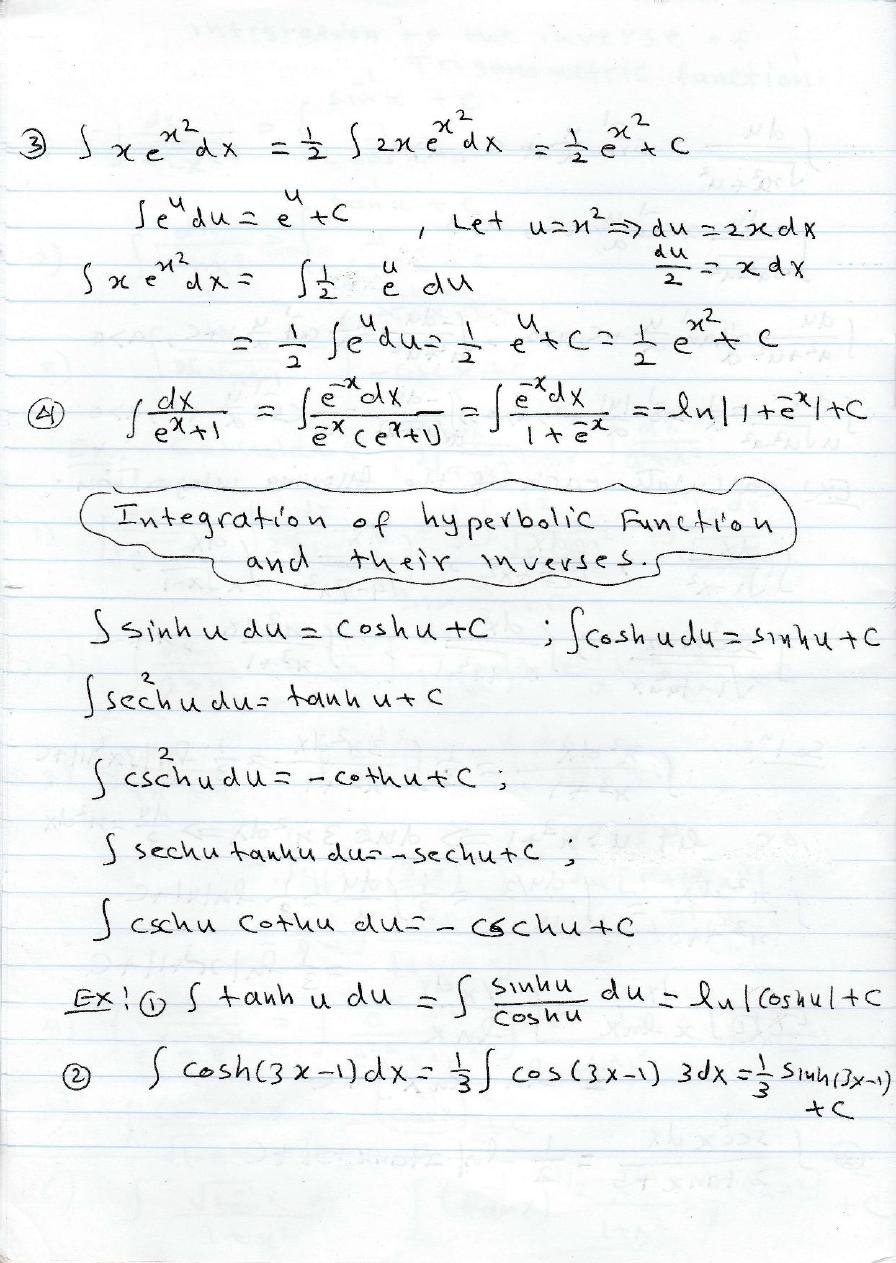 ③ ∫ x e^{x^2} dx = 1/2 ∫ 2x e^{x^2} dx = 1/2 e^{x^2} + C
∫ e^u du = e^u + C , Let u = x^2 ⇒ du = 2x dx
∫ x e^{x^2} dx = ∫ 1/2 e^u du du/2 = x dx
= 1/2 ∫ e^u du = 1/2 e^u + C = 1/2 e^{x^2} + C
④ ∫ dx/(e^x+1) = ∫ e^{-x} dx/(e^{-x}(e^x+1)) = ∫ e^{-x} dx/(1+e^{-x}) = -ln|1+e^{-x}|+C
Integration of hyperbolic Function
and their inverses.
∫ sinh u du = cosh u + C ; ∫ cosh u du = sinh u + C
∫ sech^2 u du = tanh u + C
∫ csch^2 u du = - coth u + C ;
∫ sech u tanh u du = - sech u + C ;
∫ csch u coth u du = - csch u + C
Ex: ① ∫ tanh u du = ∫ sinh u/cosh u du = ln|cosh u| + C
② ∫ cosh(3x-1) dx = 1/3 ∫ cos(3x-1) 3dx = 1/3 sinh(3x-1)
+ C